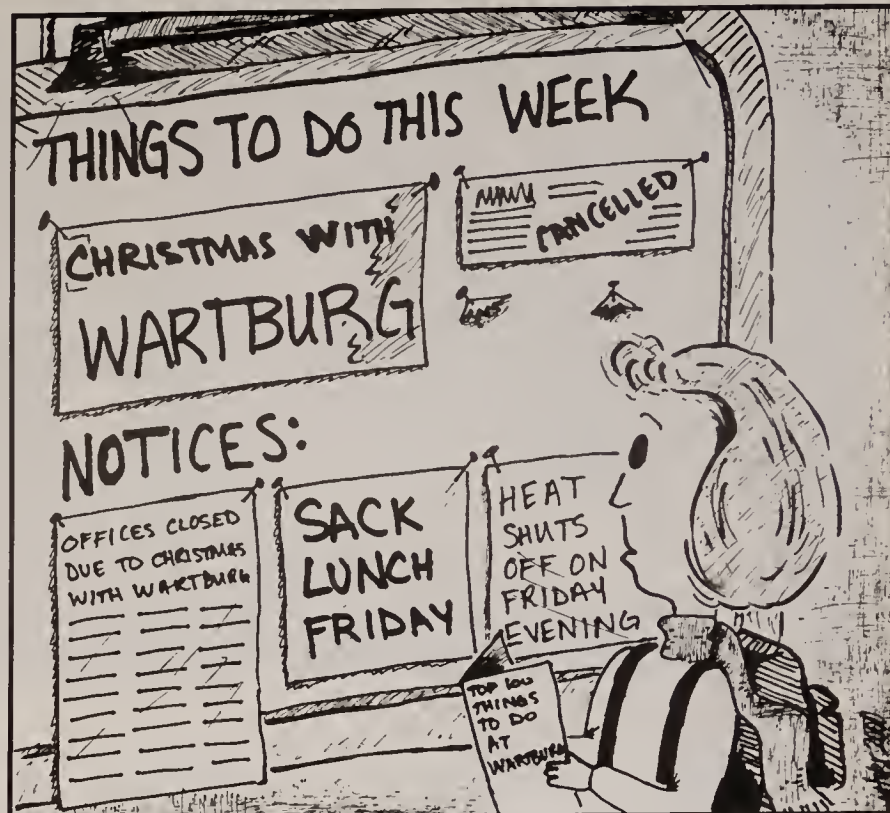 THINGS TO DO THIS WEEK
CHRISTMAS WITH
WARTBURG
CANCELLED
NOTICES:
OFFICES CLOSED
DUE TO CHRISTMAS
WITH WARTBURG
SACK
LUNCH
FRIDAY
HEAT
SHUTS
OFF ON
FRIDAY
EVENING
TOP 100
THINGS
TO DO
AT
WARTBURG